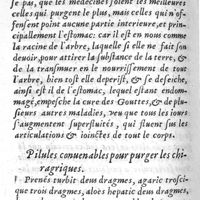 ſe pas, que les medecines ſoient les meilleures
celles qui purgent le plus, mais celles qui n'of-
fenſent point aucune partie interieure, et prin-
cipallement l'eſtomac: car il eſt en nous comme
la racine de l'arbre, laquelle ſi elle ne fait ſon
devoir, pour attirer la ſubſtance de la terre, &
de la tranſmuer en le nourriſſement de tout
l'arbre, bien toſt elle deperiſt, & ſe deſeiche,
ainſi eſt il de l'eſtomac, lequel eſtant endom-
magé, empeſche la cure des Gouttes, & de plu-
ſieurs autres maladies, veu que tous les iours
s'augmentent ſuperfluités, qui fluent ſus les
articulations & ioinctes de tout le corps.
Pilules conuenables pour purger les chi-
ragriques.
Prenés turbit deux dragmes, agaric troſciſ-
que trois dragmes, aloës hepatic deux dragmes,